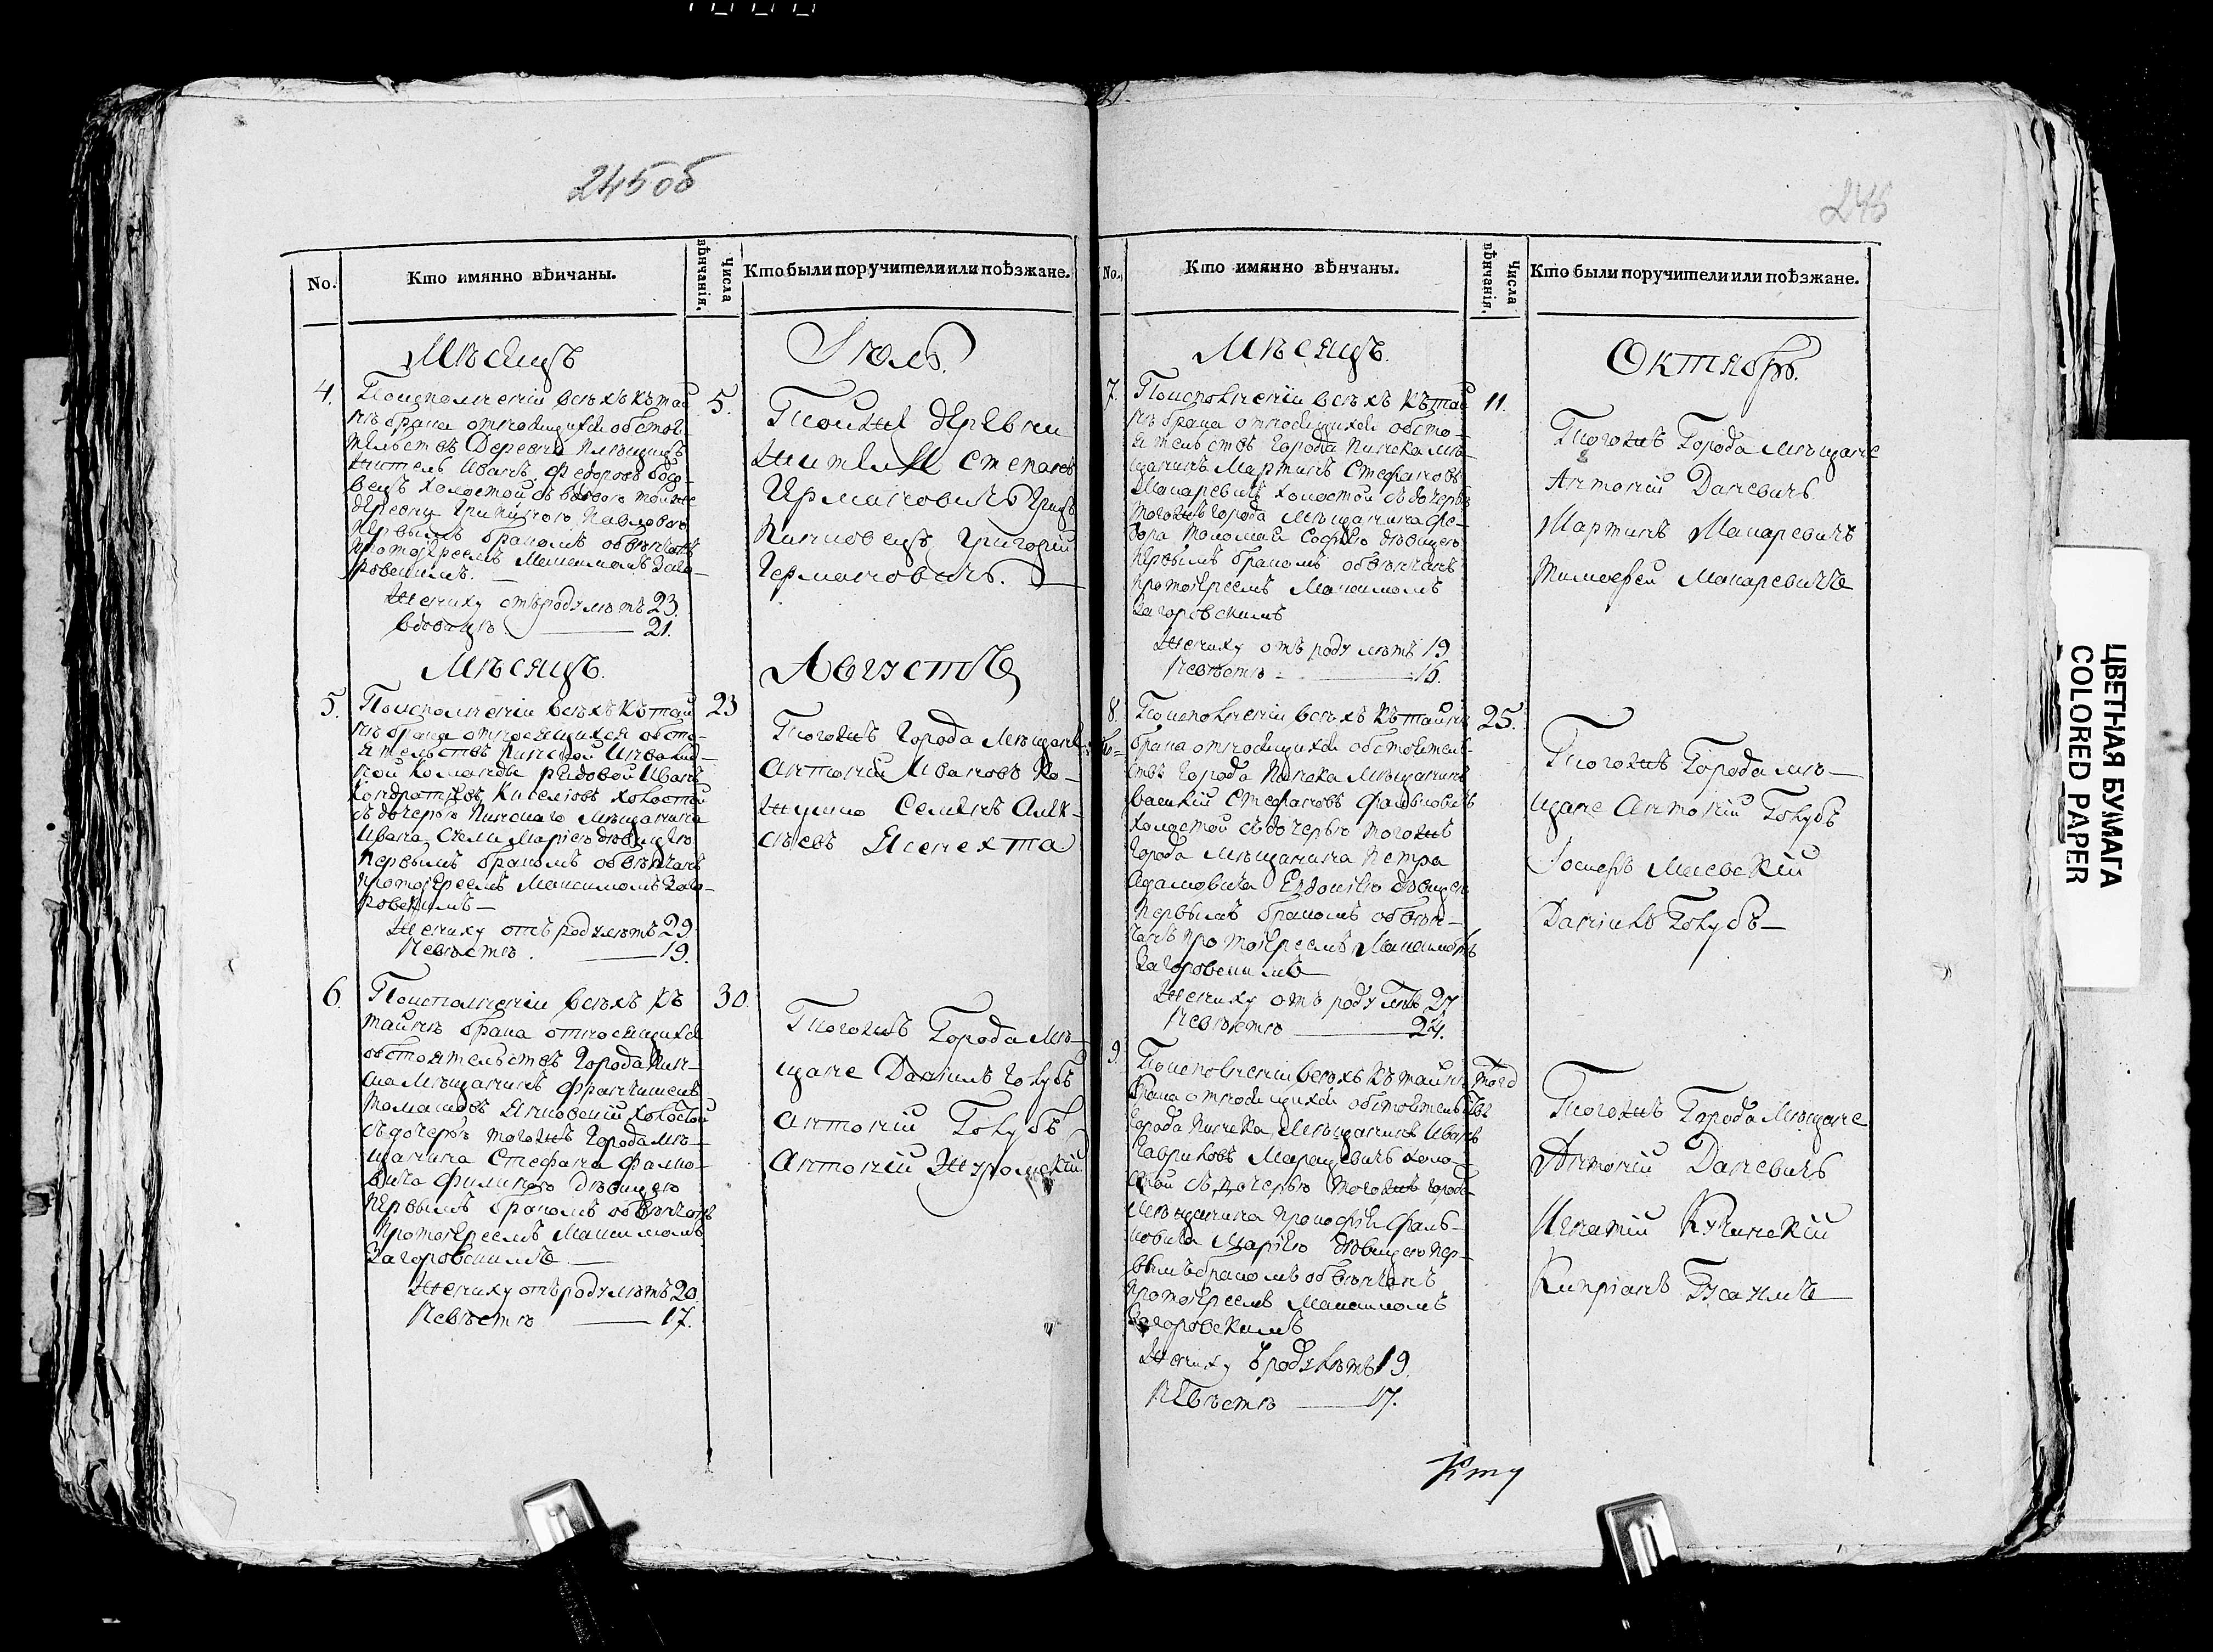 245об
No.
Кто имянно вѣнчаны.
Числа вѣнчанія.
Кто были поручители или поѣзжане.
Мѣсяцъ
Іюль.
4.
По исполненіи всѣхъ къ тай
нѣ брака относящихся обстоя-
тельствъ Деревни
житель Иванъ Федоровъ
вецъ холостой съ вдовою тойже
деревни Павловою
первымъ бракомъ обвѣнчанъ
протоіереемъ Максимомъ Заго-
ровскимъ.
Жениху отъ роду лѣтъ 23.
Вдовицѣ 21.
5.
Тойже деревни
жители Степанъ
Григорій
Германовичъ.
Мѣсяцъ.
Августъ
5.
По исполненіи всѣхъ къ тай
нѣ брака относящихся обсто-
ятельствъ Пинской Инвалид-
ной команды рядовой Иванъ
Кондратіевъ Киселювъ холостой
съ дочерью Пинскаго Мѣщанина
Ивана Марією дѣвицею
первымъ бракомъ обвѣнчанъ
протоіереемъ Максимомъ Заго-
ровскимъ
Жениху отъ роду лѣтъ 29
Невѣстѣ. 19.
23
Тогожъ Города Мѣщане
Антоній Ивановъ Ко-
жушко Семенъ Алек-
сѣевъ
6.
По исполненіи всѣхъ къ
тайнѣ брака относящихся
обстоятельствъ Города Пин-
ска Мѣщанинъ Францишекъ
Томашовъ Янковскій холостой
съ дочерью тогожъ Города мѣ-
щанина Стефана Фалько-
вича дѣвицею
первымъ бракомъ обвѣнчанъ
протоіереемъ Максимомъ
Загоровскимъ.
Жениху отъ роду лѣтъ 20.
Невѣстѣ 17.
30.
Тогожъ Города Мѣ-
щане Даніилъ Голубъ
Антоній Голубъ
Антоній Журомскій
246
No.
Кто имянно вѣнчаны.
Числа вѣнчанія.
Кто были поручители или поѣзжане.
Мѣсяцъ.
Октябрь.
7.
По исполненіи всѣхъ къ тай
нѣ брака относящихся обсто-
ятельствъ Города Пинска мѣ-
щанинъ Мартинъ Стефановъ
Макаревичъ холостой съ дочерью
тогожъ города мѣщанина Фе-
дора Софією дѣвицею
первымъ бракомъ обвѣнчанъ
протоіереемъ Максимомъ
Загоровскимъ
Жениху отъ роду лѣтъ 19
Невѣстѣ 16.
11.
Тогожъ Города мѣщане
Антоній Даневичъ
Мартинъ Макаревичъ
Тимофей Макаревичъ
8.
По исполненіи всѣхъ къ тайнѣ
брака относящихся обстоятель-
ствъ Города Пинска Мѣщанинъ
Василій Стефановъ Фальковичъ
холостой съ дочерью тогожъ
города мѣщанина Петра
Адамовича дѣвицею
первымъ бракомъ обвѣн-
чанъ протоіереемъ Максимомъ
Загоровскимъ
Жениху отъ роду лѣтъ 27
Невѣстѣ 24.
25.
Тогожъ Города мѣ-
щане Антоній Голубъ
Іосифъ
Даніилъ Голубъ
9.
По исполненіи всѣхъ къ тайнѣ
брака относящихся обстоятельствъ
города Пинска Мѣщанинъ Иванъ
Гавриловъ Марцевичъ холо-
стой съ дочерью тогожъ города
мѣщанина Прокофія Фаль-
ковича Марією дѣвицею пер-
вымъ бракомъ обвѣнчанъ
протоіереемъ Максимомъ
Загоровскимъ
Жениху роду лѣтъ 19.
Невѣстѣ 17.
Того
Тогожъ Города Мѣщане
Антоній Даневичъ
Игнатій Кучинскій
Кипріанъ
ЦВЕТНАЯ БУМАГА
COLORED PAPER